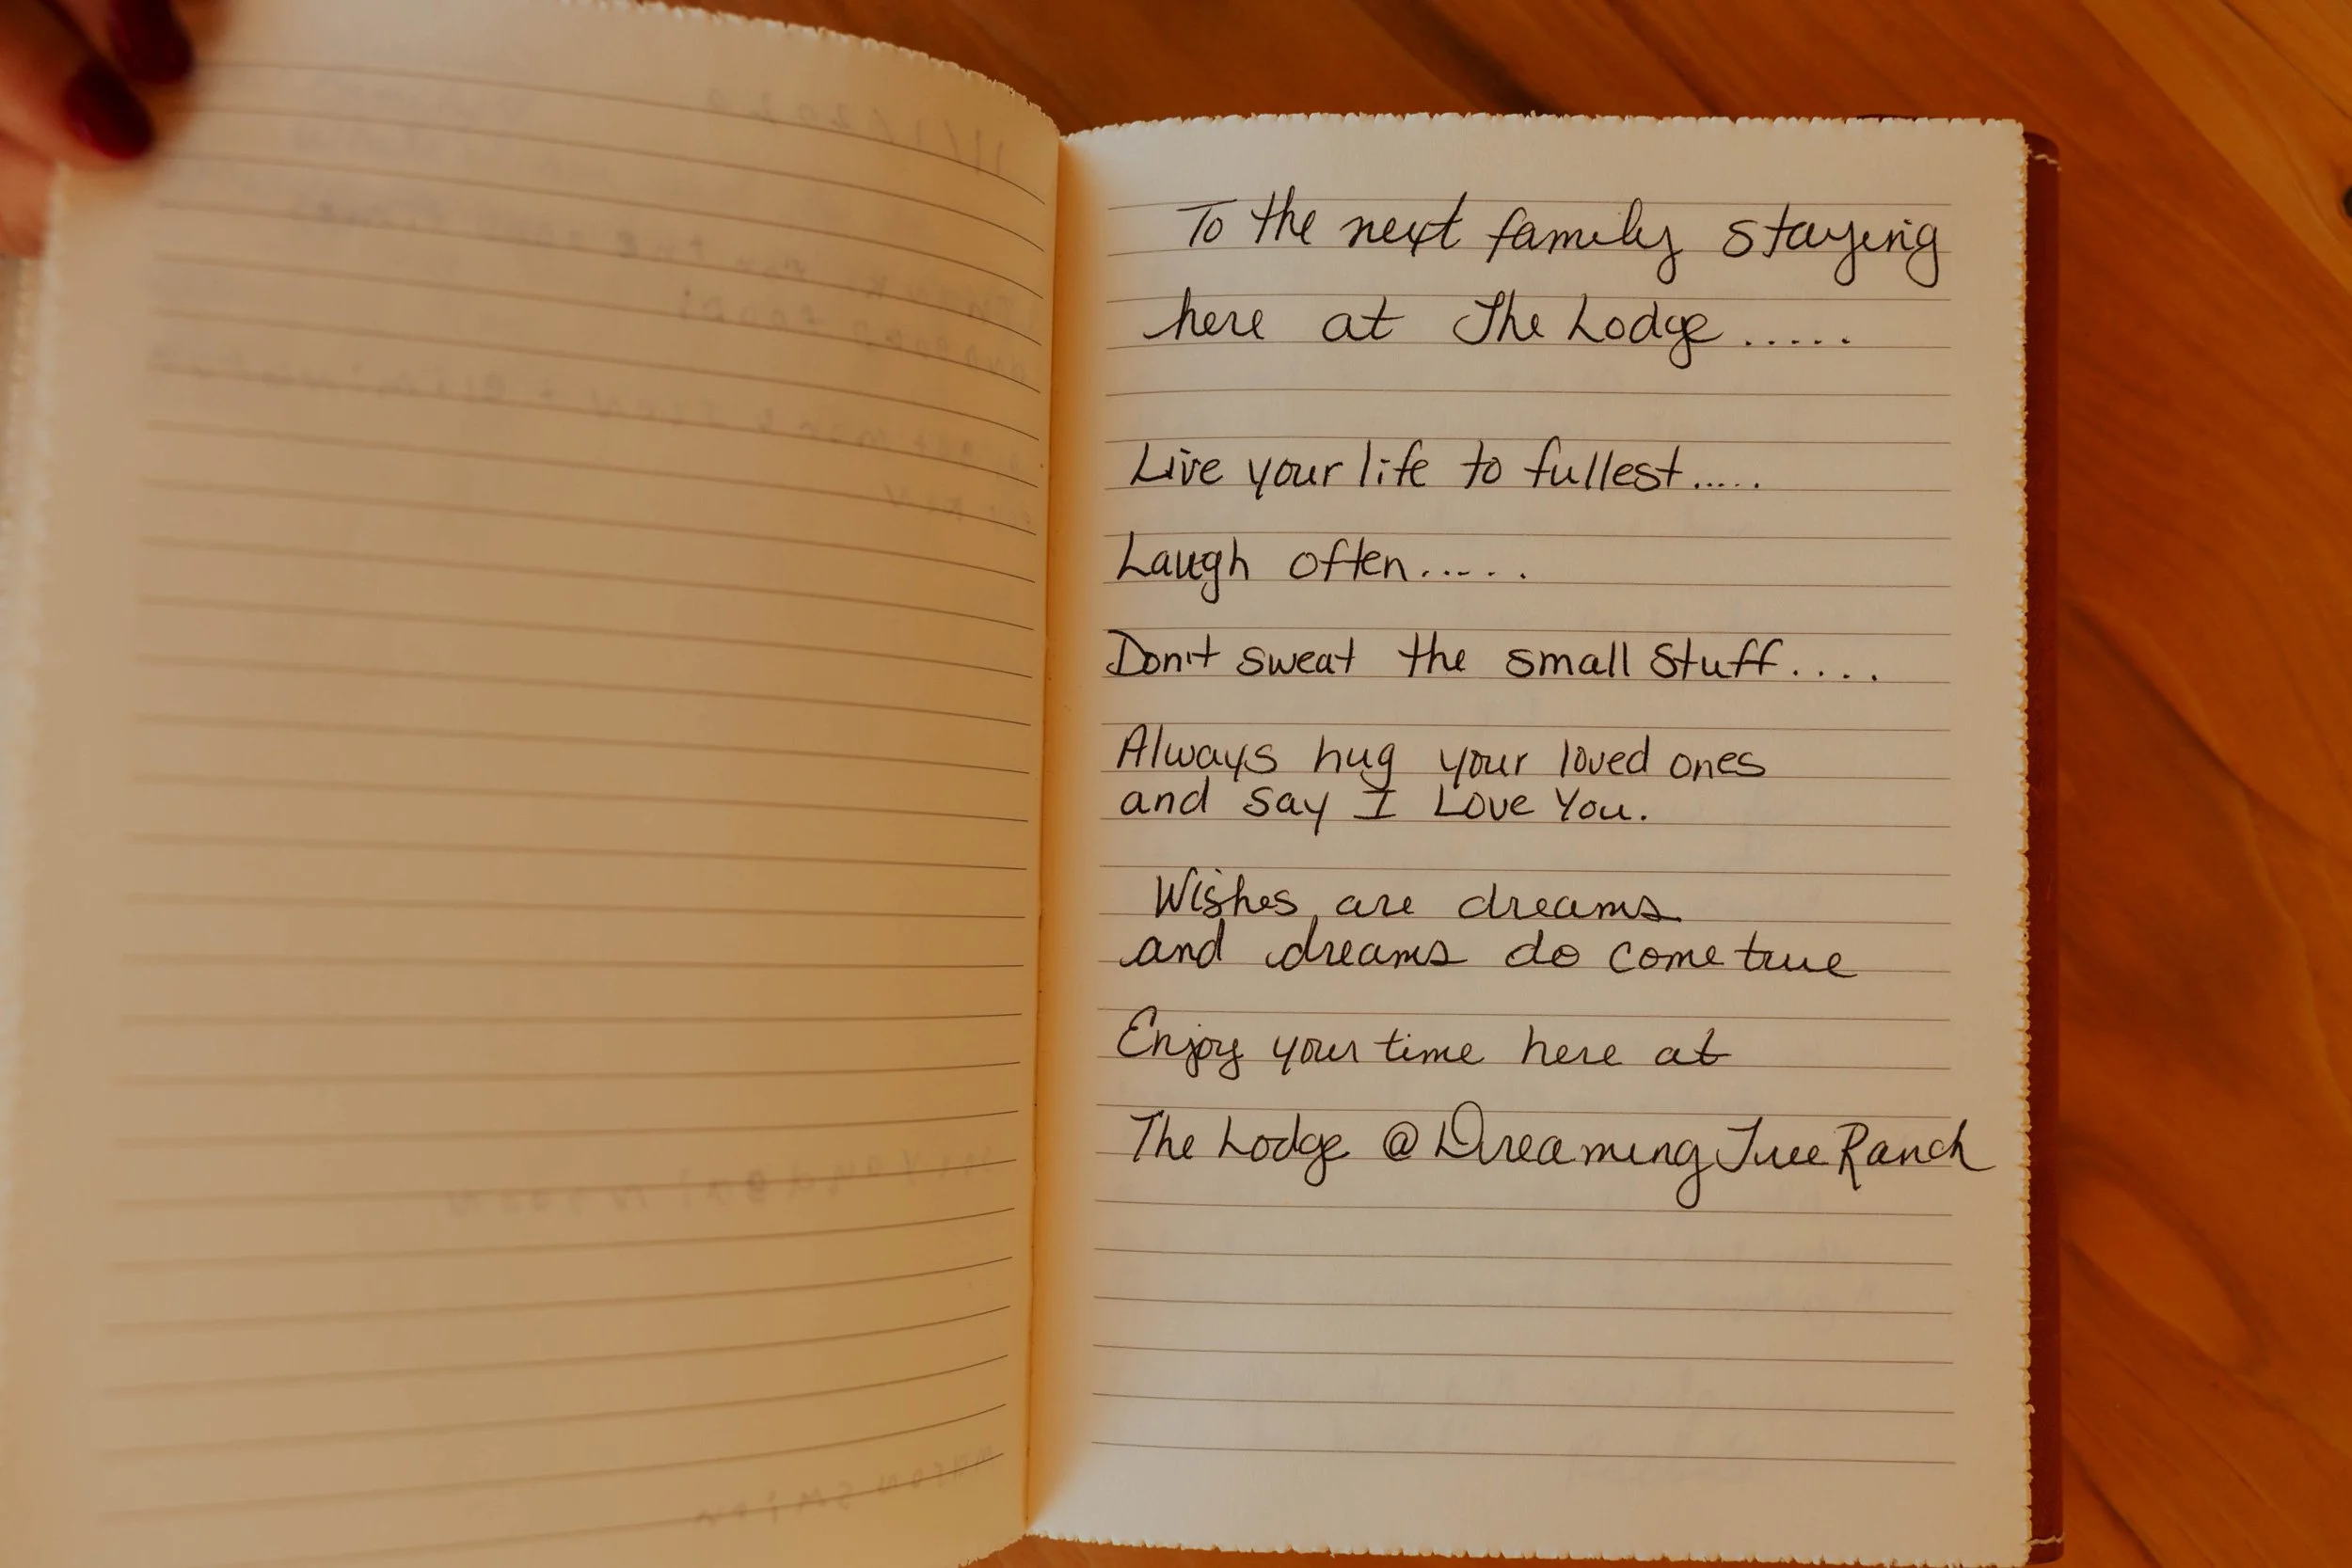 To the next family staying
here at The Lodge.....
Live your life to fullest.....
Laugh often.....
Don't sweat the small stuff....
Always hug your loved ones
and say I Love You.
Wishes are dreams
and dreams do come true
Enjoy your time here at
The Lodge @ Dreaming Tree Ranch